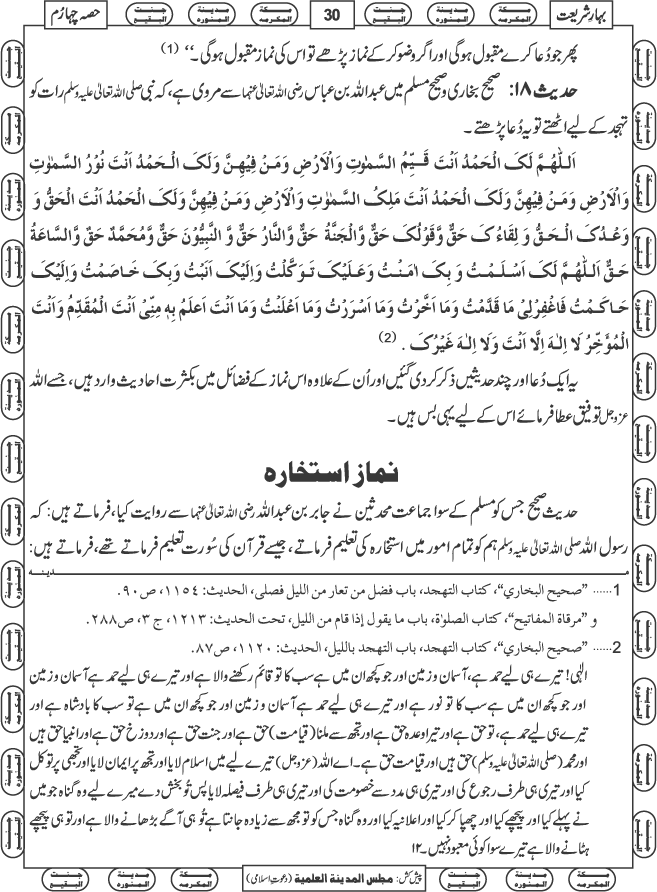 بہارِ شریعت
30
حصہ چہارم
پھر جو دُعا کرے مقبول ہوگی اور اگر وضو کر کے نماز پڑھے تو اس کی نماز مقبول ہوگی۔‘‘ (1)
حدیث ۱۸: صحیح بخاری و صحیح مسلم میں عبداللہ بن عباس رضی اللہ تعالیٰ عنہما سے مروی ہے، کہ نبی صلی اللہ تعالیٰ علیہ وسلم رات کو
تہجد کے لیے اٹھتے تو یہ دُعا پڑھتے۔
اَللّٰهُمَّ لَکَ الْحَمْدُ اَنْتَ قَیِّمُ السَّمٰوٰتِ وَالْاَرْضِ وَمَنْ فِیْهِنَّ وَلَکَ الْحَمْدُ اَنْتَ نُوْرُ السَّمٰوٰتِ
وَالْاَرْضِ وَمَنْ فِیْهِنَّ وَلَکَ الْحَمْدُ اَنْتَ مَلِکُ السَّمٰوٰتِ وَالْاَرْضِ وَمَنْ فِیْهِنَّ وَلَکَ الْحَمْدُ اَنْتَ الْحَقُّ وَ
وَعْدُکَ الْحَقُّ وَ لِقَاءُکَ حَقٌّ وَّقَوْلُکَ حَقٌّ وَّالْجَنَّةُ حَقٌّ وَّالنَّارُ حَقٌّ وَّ النَّبِیُّوْنَ حَقٌّ وَّمُحَمَّدٌ حَقٌّ وَّالسَّاعَةُ
حَقٌّ اَللّٰهُمَّ لَکَ اَسْلَمْتُ وَ بِکَ اٰمَنْتُ وَعَلَیْکَ تَوَکَّلْتُ وَاِلَیْکَ اَنَبْتُ وَبِکَ خَاصَمْتُ وَاِلَیْکَ
حَاکَمْتُ فَاغْفِرْلِیْ مَا قَدَّمْتُ وَمَا اَخَّرْتُ وَمَا اَسْرَرْتُ وَمَا اَعْلَنْتُ وَمَا اَنْتَ اَعْلَمُ بِهٖ مِنِّیْ اَنْتَ الْمُقَدِّمُ وَاَنْتَ
الْمُؤَخِّرُ لَا اِلٰهَ اِلَّا اَنْتَ وَلَا اِلٰهَ غَیْرُکَ . (2)
یہ ایک دُعا اور چند حدیثیں ذکر کر دی گئیں اور اُن کے علاوہ اس نماز کے فضائل میں بکثرت احادیث وارد ہیں، جسے اللہ
عزوجل توفیق عطا فرمائے اس کے لیے یہی بس ہیں۔
نماز استخارہ
حدیث صحیح جس کو مسلم کے سوا جماعت محدثین نے جابر بن عبداللہ رضی اللہ تعالیٰ عنہما سے روایت کیا، فرماتے ہیں: کہ
رسول اللہ صلی اللہ تعالیٰ علیہ وسلم ہم کو تمام امور میں استخارہ کی تعلیم فرماتے، جیسے قرآن کی سُورت تعلیم فرماتے تھے، فرماتے ہیں:
مدینہ
1...... ”صحیح البخاري“، کتاب التهجد، باب فضل من تعار من اللیل فصلی، الحدیث: ١١٥٤، ص٩٠.
و ”مرقاة المفاتیح“، کتاب الصلوٰة، باب ما یقول إذا قام من اللیل، تحت الحدیث: ١٢١٣، ج ٣، ص٢٨٨.
2...... ”صحیح البخاري“، کتاب التهجد، باب التهجد باللیل، الحدیث: ١١٢٠، ص٨٧.
الٰہی! تیرے ہی لیے حمد ہے، آسمان و زمین اور جو کچھ ان میں ہے سب کا تو قائم رکھنے والا ہے اور تیرے ہی لیے حمد ہے آسمان و زمین
اور جو کچھ ان میں ہے سب کا تو نور ہے اور تیرے ہی لیے حمد ہے آسمان و زمین اور جو کچھ ان میں ہے تو سب کا بادشاہ ہے اور
تیرے ہی لیے حمد ہے، تو حق ہے اور تیرا وعدہ حق ہے اور تجھ سے ملنا (قیامت) حق ہے اور جنت حق ہے اور دوزخ حق ہے اور انبیا حق ہیں
اور محمد (صلی اللہ تعالیٰ علیہ وسلم) حق ہیں اور قیامت حق ہے۔ اے اللہ (عزوجل) تیرے لیے میں اسلام لایا اور تجھ پر ایمان لایا اور تجھی پر توکل
کیا اور تیری ہی طرف رجوع کی اور تیری ہی مدد سے خصومت کی اور تیری ہی طرف فیصلہ لایا پس تُو بخش دے میرے لیے وہ گناہ جو میں
نے پہلے کیا اور پیچھے کیا اور چھپا کر کیا اور اعلانیہ کیا اور وہ گناہ جس کو تو مجھ سے زیادہ جانتا ہے تُو ہی آگے بڑھانے والا ہے اور تو ہی پیچھے
ہٹانے والا ہے تیرے سوا کوئی معبود نہیں۔ ۱۲
پیش کش: مجلس المدینة العلمیة (دعوتِ اسلامی)